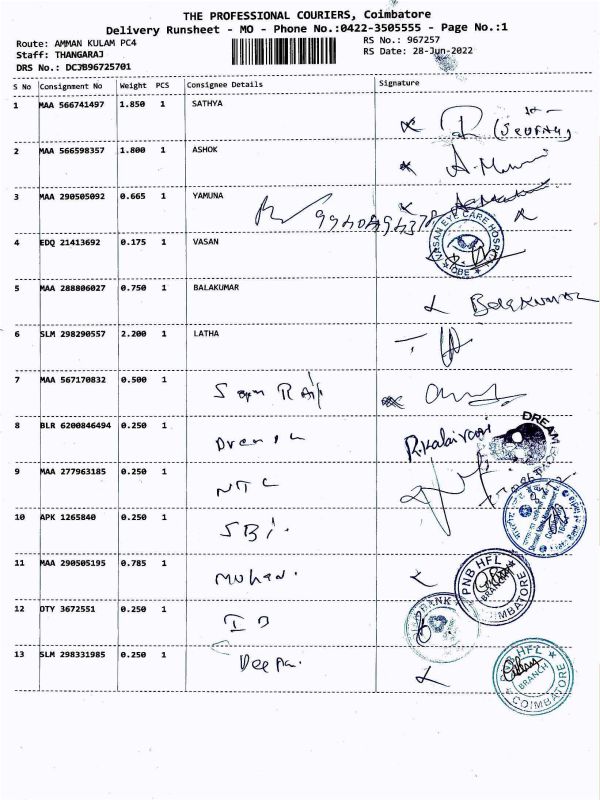 THE PROFESSIONAL COURIERS, Coimbatore
Delivery Runsheet - MO - Phone No.:0422-3505555 - Page No.:1
Route: AMMAN KULAM PC4
RS No.: 967257
Staff: THANGARAJ
RS Date: 28-Jun-2022
DRS No.: DCJB96725701
S No Consignment No Weight PCS Consignee Details Signature
1 MAA 566741497 1.850 1 SATHYA
2 MAA 566598357 1.800 1 ASHOK
3 MAA 290505092 0.665 1 YAMUNA
4 EDQ 21413692 0.175 1 VASAN
VASAN EYE CARE HOSPITAL
5 MAA 288806027 0.750 1 BALAKUMAR
6 SLM 298290557 2.200 1 LATHA
7 MAA 567170832 0.500 1
8 BLR 6200846494 0.250 1 R.Kalaivani
DREAM
9 MAA 277963185 0.250 1 NTC
10 APK 1265840 0.250 1 SBi.
11 MAA 290505195 0.785 1 Mohan.
PNB HFL
BRANCH
COIMBATORE
12 OTY 3672551 0.250 1 IB
BANK
13 SLM 298331985 0.250 1 Deepa.
HFL
BRANCH
COIMBATORE